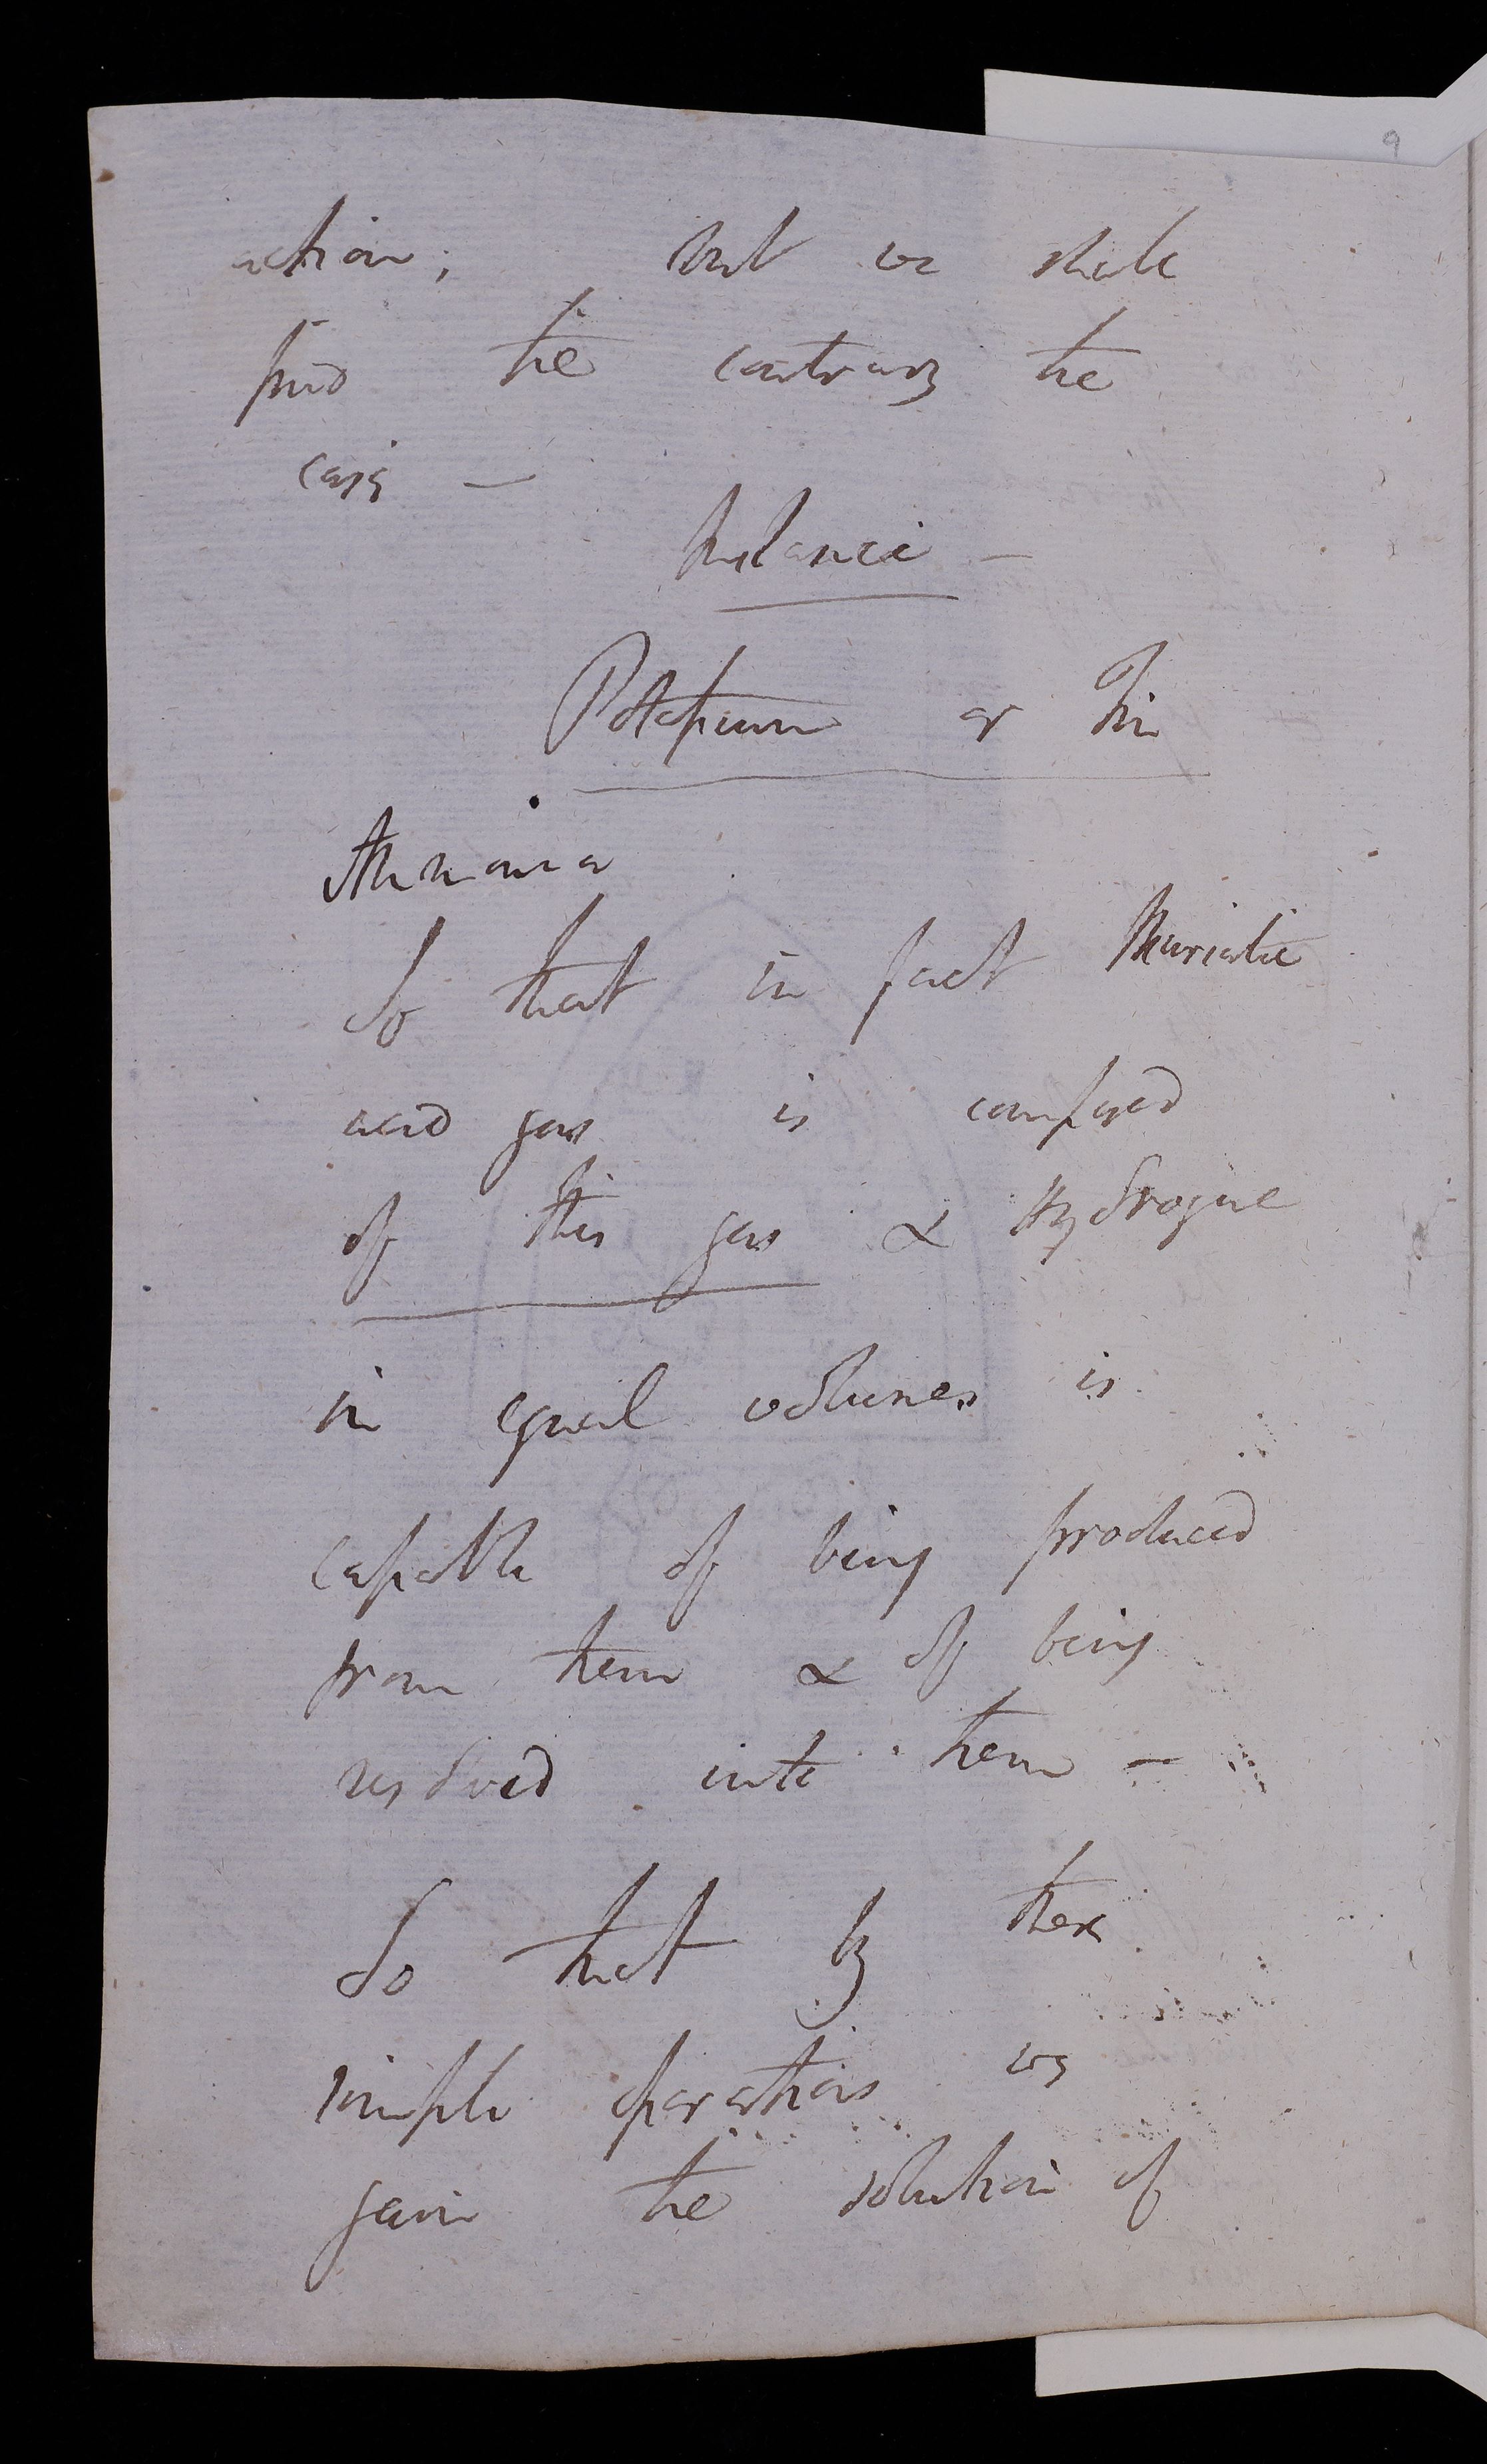 9
action; But we shall
find the contrary the
case —
Instance —
Potassium or Tin
Ammonia
So that in fact Muriatic
acid gas is composed
of this gas & Hydrogene
in equal volumes is
capable of being produced
from them & of being
resolved into them —
So that by these
simple operations we
gain the solution of